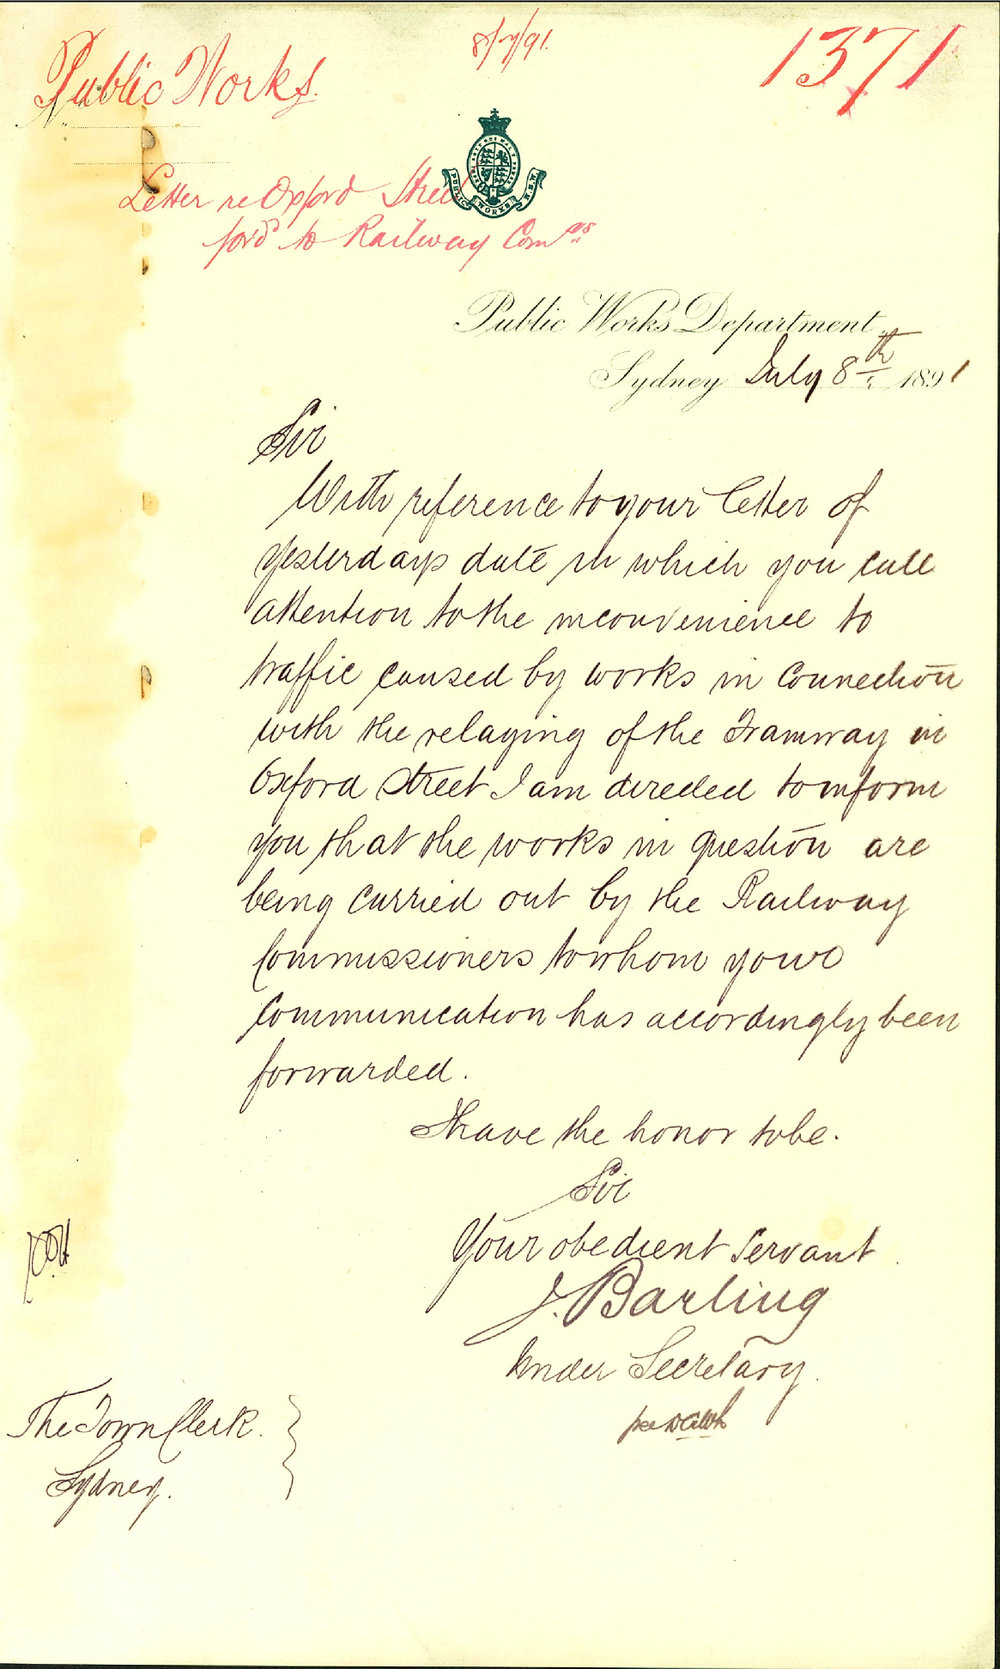 8/7/91.
1371
Public Works.
Letter re Oxford Street
ford to Railway Comrs
PUBLIC WORKS N.S.W.
Public Works Department,
Sydney July 8th 1891
Sir
With reference to your letter of
yesterdays date in which you call
attention to the inconvenience to
traffic caused by works in connection
with the relaying of the Tramway in
Oxford Street I am directed to inform
you that the works in question are
being carried out by the Railway
Commissioners to whom your
communication has accordingly been
forwarded.
I have the honor to be.
Sir
Your obedient Servant
J. Barling
Under Secretary.
The Town Clerk.
Sydney.